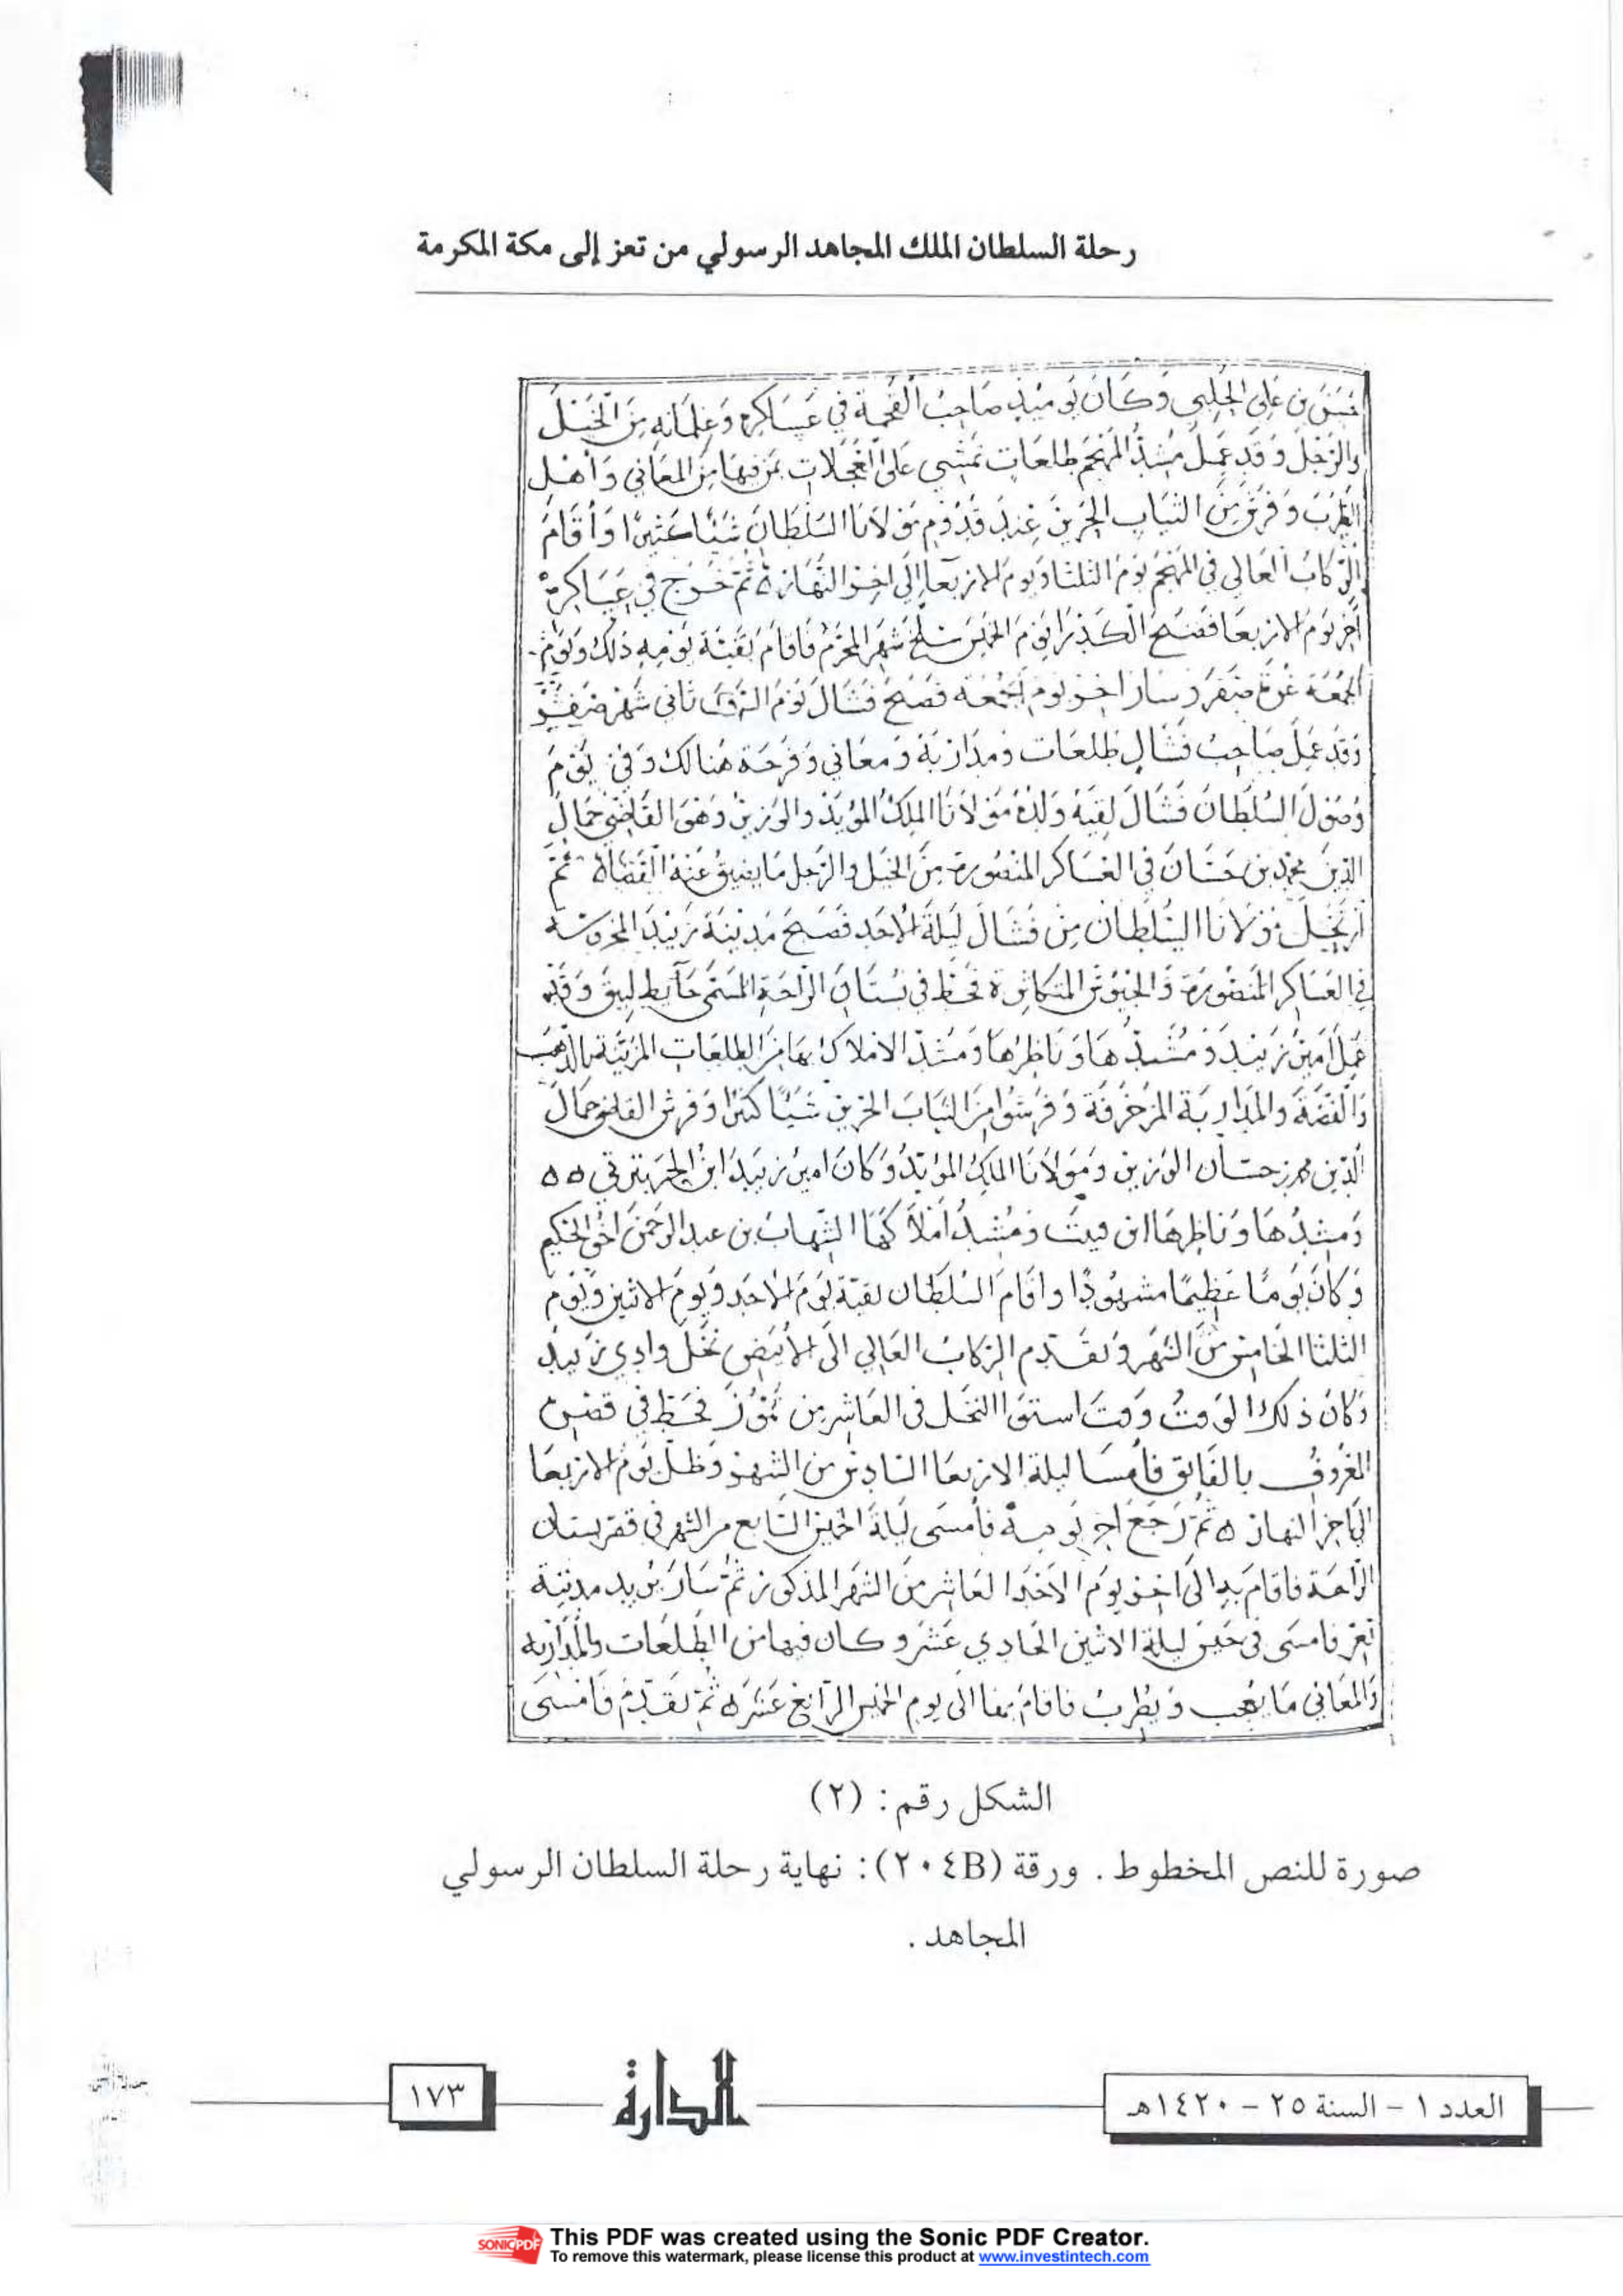 رحلة السلطان الملك المجاهد الرسولي من تعز إلى مكة المكرمة
حسن بن علي الحلبي وكان يوميذ صاحب القحمة في عساكره وغلمانه من الخيل
والرجل وقد عمل مشد المهجم طلعات تمشي على العجلات بمن فيها من المعاني وأهل
الطرب وفرق من الثياب الحرير عند قدوم مولانا السلطان شيئا كثيرا وأقام
الركاب العالي في المهجم يوم الثلثا ويوم الاربعا إلى اخر النهار ثم خرج في عساكره
آخر يوم الاربعا فصبح الكدرا يوم الخميس سلخ شهر المحرم فاقام بقية يومه ذلك ويوم
الجمعة غرة صفر وسار اخر يوم الجمعة فصبح فشال يوم ثاني شهر صفر
وقد عمل صاحب فشال طلعات ومدارية ومعاني وفرحة هنالك وفي يوم
وصول السلطان فشال لقيه ولده مولانا الملك المؤيد والوزير وهو القاضي جمال
الدين محمد بن حسان في العساكر المنصورة من الخيل والرجل ما يضيق عنه الفضاء ثم
ارتحل مولانا السلطان من فشال ليلة الاحد فصبح مدينة زبيد المحروسة
في العساكر المنصورة والجيوش المتكاثرة فحط في بستان الراحة المسمى حايط لبيق وقد
عمل امير زبيد ومشدها وناظرها ومشد الاملاك بها من الطلعات المزينة بالذهب
والفضة والمدارية المزخرفة وفرشوا من الثياب الحرير شيئا كثيرا وفرش القاضي جمال
الدين محمد بن حسان الوزير ومولانا الملك المؤيد وكان امير زبيد ابن
ومشدها وناظرها ابن ومشد أملاكها الشهاب بن عبد الرحمن اخو الحكيم
وكان يوما عظيما مشهودا واقام السلطان بقية يوم الاحد ويوم الاثنين ويوم
الثلثا الخامس من الشهر وتقدم الركاب العالي الى الأبيض نخل وادي زبيد
وكان ذلك الوقت وقت استوا النخل في العاشر من تموز فحط في قصره
المعروف بالفايق فأمسا ليلة الاربعا السادس من الشهر وظل يوم الاربعا
الى اخر النهار ثم رجع اخر يومه فأمسى ليلة الخميس السابع من الشهر في قصر بستان
الراحة فاقام به الى اخر يوم الاحد العاشر من الشهر المذكور ثم سار يريد مدينة
تعز فامسى في حيس ليلة الاثنين الحادي عشر وكان فيها من الطلعات والمداريه
والمعاني ما يعجب ويطرب فاقام بها الى يوم الخميس الرابع عشر ثم تقدم فأمسى
الشكل رقم : (٢)
صورة للنص المخطوط . ورقة (٢٠٤B) : نهاية رحلة السلطان الرسولي
المجاهد .
العدد ١ – السنة ٢٥ – ١٤٢٠هـ
الدارة
١٧٣
SONICPDF
This PDF was created using the Sonic PDF Creator.
To remove this watermark, please license this product at www.investintech.com